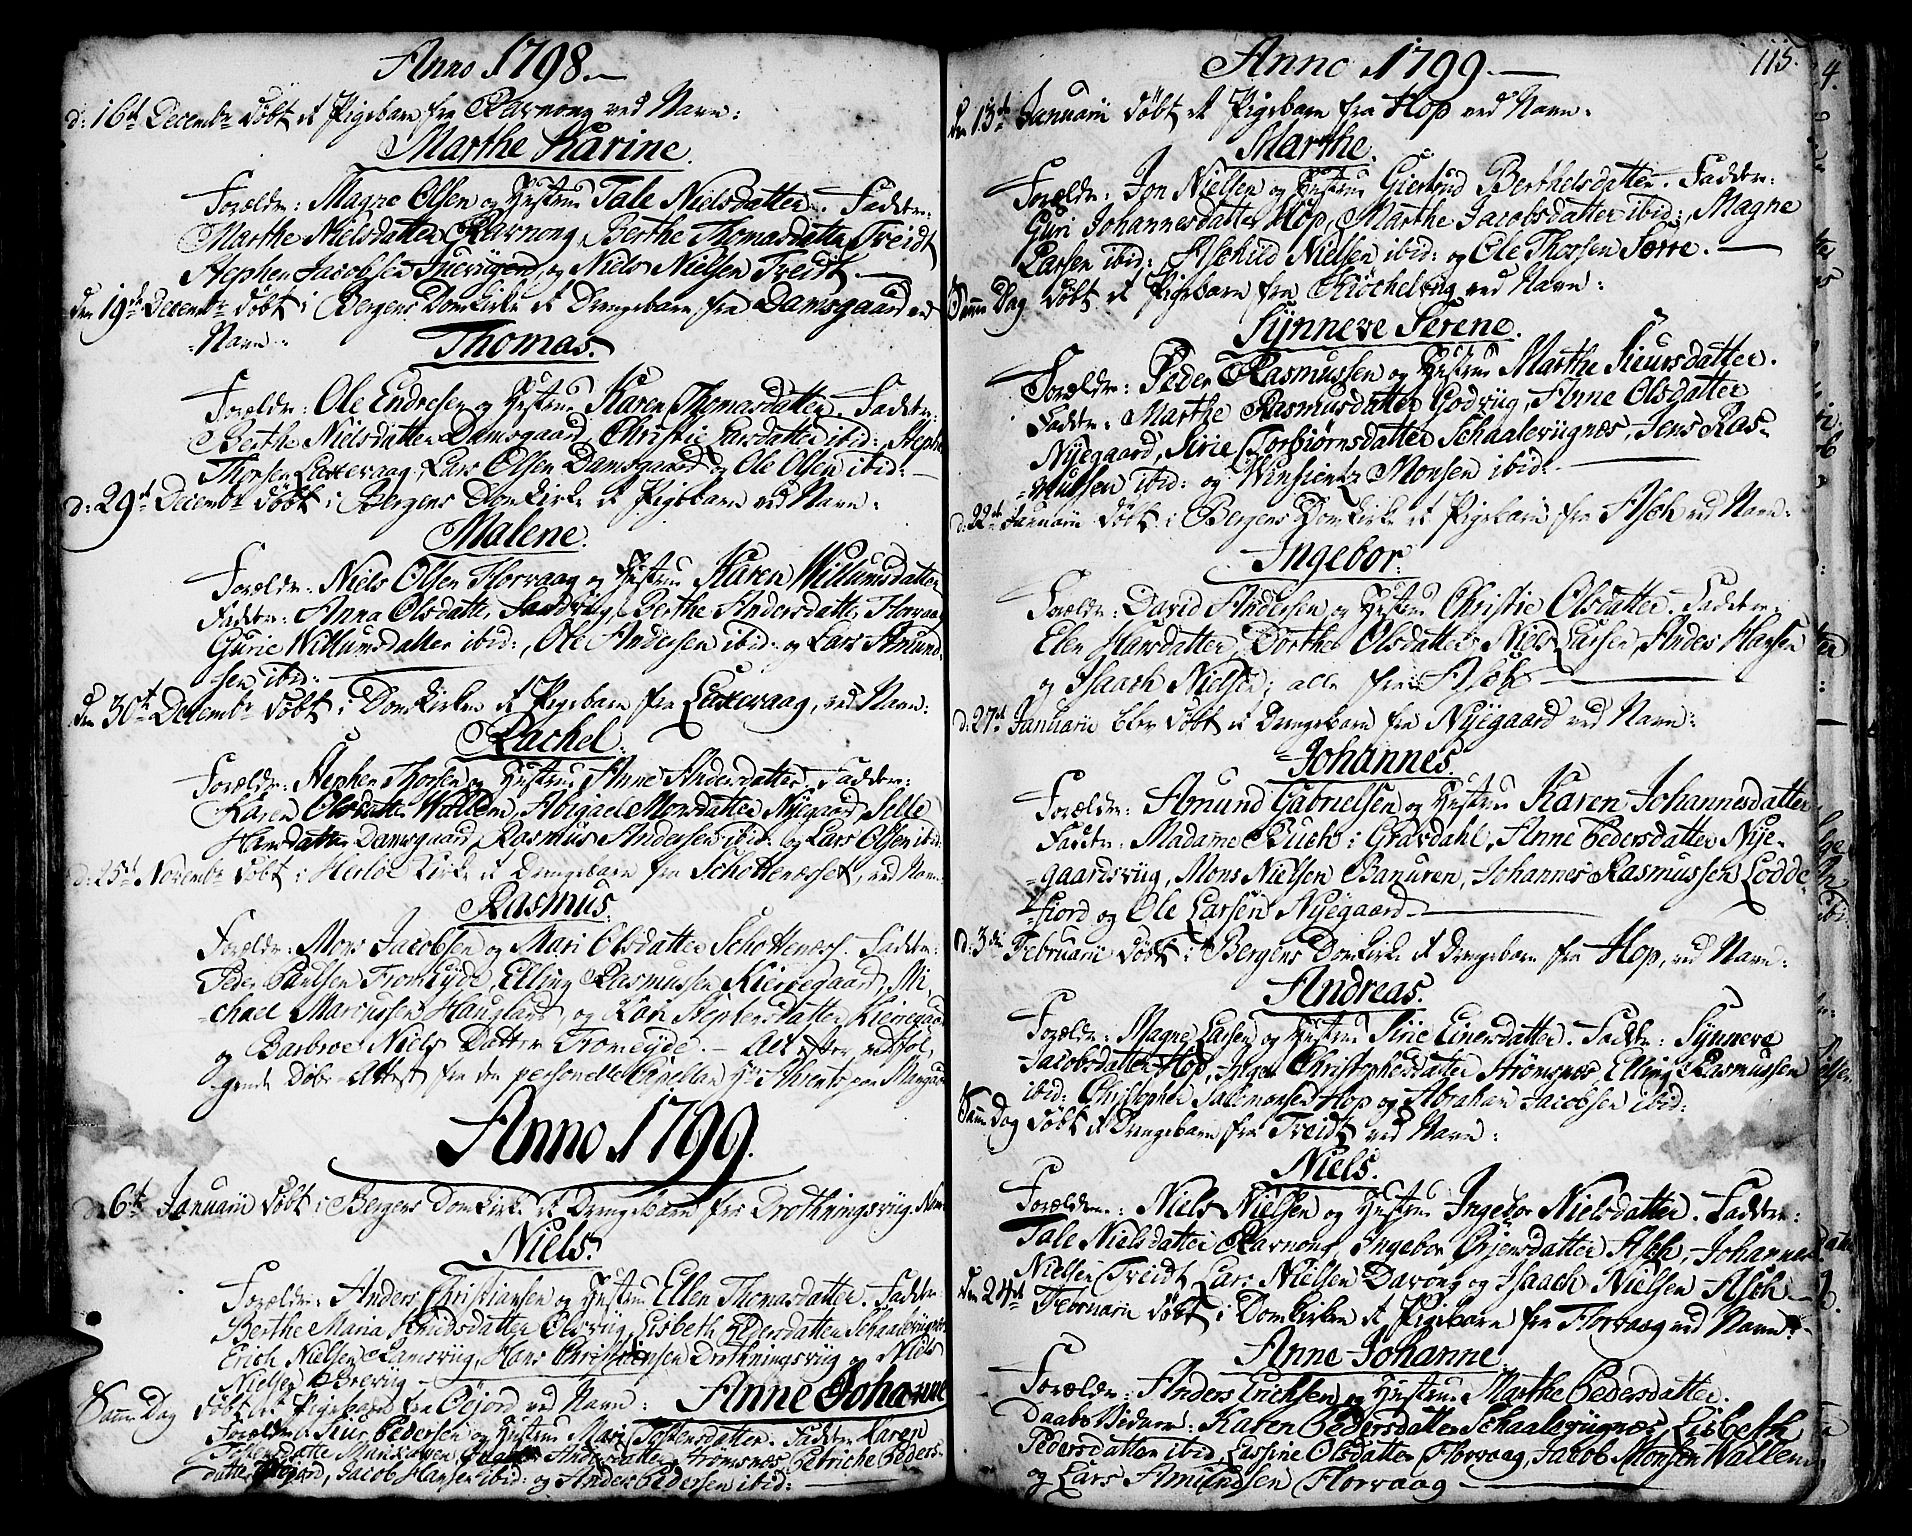 Anno 1798.
d: 16t Decembr Døbt et Pigebarn fra Ravnong ved Navn:
Marthe Karine.
Forældr: Magne Olsen og Hustrue Tale Nielsdatter. Faddr:
Marthe Nielsdatter Ravnong, Berthe Thomasdatter Tveidt
Stephen Jacobsen og Niels Nielsen Tveidt.
den 19de Decembr Døbt i Bergens Domkirke et Drengebarn fra Damsgaard ved
Navn:
Thomas.
Forældr: Ole Endresen og Hustrue Karen Thomasdatter. Faddr:
Berthe Nielsdatter Damsgaard, Christie Larsdatter ibid:, Stephen
Thorsen Luxevaag, Lars Olsen Damsgaard og Ole Olsen ibid:
d: 29t Decembr Døbt i Bergens Domkirke et Pigebarn ved Navn:
Malene.
Forældr: Niels Olsen Florvaag og Hustrue Karen Willumsdatter
Faddr: Anna Olsdatter Sandviig, Berthe Andersdatter Florvaag
Gurie Willumsdatter ibid:, Ole Andersen ibid: og Lars Amund-
sen ibid:
den 30t Decembr Døbt i Domkirken et Pigebarn fra Luxevaag, ved Navn:
Rachel.
Forældr: Stephen Thorsen og Hustrue Anne Andersdatter. Faddr:
Karen Olsdatter Wallem, Abigael Monsdatter Nyegaard, Sille
Hansdatter Damsgaard, Rasmus Andersen ibid: og Lars Olsen ibid:
d: 25t Novembr Døbt i Kirke et Drengebarn fra Schottenæsset, ved Navn
Rasmus.
Forældr: Mons Jacobsen og Mari Olsdatter Schottenæss. Faddr:
Peder Paulsen Tromøyde, Elling Rasmussen Kierregaard, Mi-
chael Marcussen Haugland, og Kari Stephensdatter Kierregaard
og Barbroe Niels Datter Tromøyde. Alt efter vedføl-
gende Døbe-Attest fra den personelle Capellan Hr Ahrentz paa Manger
Anno 1799.
d: 6te Januarii Døbt i Bergens Domkirke et Drengebarn fra Drotningsviig Navn
Niels.
Forældr: Anders Christiansen og Hustrue Ellen Thomasdatter. Faddr:
Berthe Maria Knudsdatter Olsviig, Lisbeth Pedersdatter Schaaleviignæs
Erich Nielsen Ramsviig, Hans Christiansen Drotningsviig og Niels
Nielsen Breviig
Samme Dag Døbt et Pigebarn fra ved Navn: Anne Johanne
Forældr: Siur Pedersen og Hustrue Mari Tostensdatter. Faddr: Karen
Andersdatter Strømsnæs, Petriche Peders-
datter Jacob Hansen ibid: og Anders Pedersen ibid:
Anno 1799. 115.
den 13de Januarii Døbt et Pigebarn fra Hop ved Navn:
Marthe.
Forældr: Jon Nielsen og Hustrue Giertrud Berthelsdatter. Faddr:
Guri Johannesdatter Hop, Marthe Jacobsdatter ibid:, Magne
Larsen ibid: Aschild Nielsen ibid: og Ole Thorsen Sørre.
Samme Dag Døbt et Pigebarn fra Kiøchelviig ved Navn:
Sÿnneve Serene.
Forældr: Peder Rasmussen og Hustrue Marthe Siursdatter.
Faddr: Marthe Rasmusdatter Godviig, Anne Olsdatter
Nyegaard, Sirie Torbiørnsdatter Schaaleviignæs, Jens Ras-
mussen ibid: og Winsientz Monsen ibid:
d: 22de Januarii Døbt i Bergens Domkirke et Pigebarn fra Asch ved Navn:
Ingebor.
Forældr: David Andersen og Hustrue Christie Olsdatter. Faddr:
Elen Hansdatter, Dorthe Olsdatter, Niels Larsen, Anders Hansen
og Isaach Nielsen; alle fra Asch
d: 27de Januarii blev Døbt et Drengebarn fra Nyegaard ved Navn:
Johannes.
Forældr: Amund Gabrielsen og Hustrue Karen Johannesdatter
Faddr: Madame Buch i Gravdahl, Anne Pedersdatter Nye-
gaardsviig, Mons Nielsen Banuren, Johannes Rasmussen Lodde-
fiord og Ole Larsen Nyegaard
d: 3die Februarii Døbt i Bergens Domkirke et Drengebarn fra Hop, ved Navn:
Andreas.
Forældr: Magne Larsen og Hustrue Sirie Einersdatter. Faddr: Sÿnneve
Jacobsdatter Hop, Inger Christophersdatter Strømsnæs, Elling Rasmussen
ibid: Christopher Salemonsen Hop og Abraham Jacobsen ibid:
Samme Dag Døbt et Drengebarn fra Tveidt ved Navn:
Niels.
Forældre: Niels Nielsen og Hustrue Ingebor Nielsdatter. Faddr:
Tale Nielsdatter Ravnong, Ingebor Asch, Johannes
Nielsen Tveidt, Lars Nielsen Davong og Isaach Nielsen Asch
den 24de Februarii Døbt i Domkirken et Pigebarn fra Florvaag ved Navn:
Anne Johanne.
Forældr: Anders Erichsen og Hustrue Marthe Pedersdatter.
Daabs Vidner: Karen Pedersdatter Schaaleviignæs, Lisbeth
Pedersdatter ibid, Lassine Olsdatter Florvaag, Jacob Monsen Wallem
og Lars Amundsen Florvaag